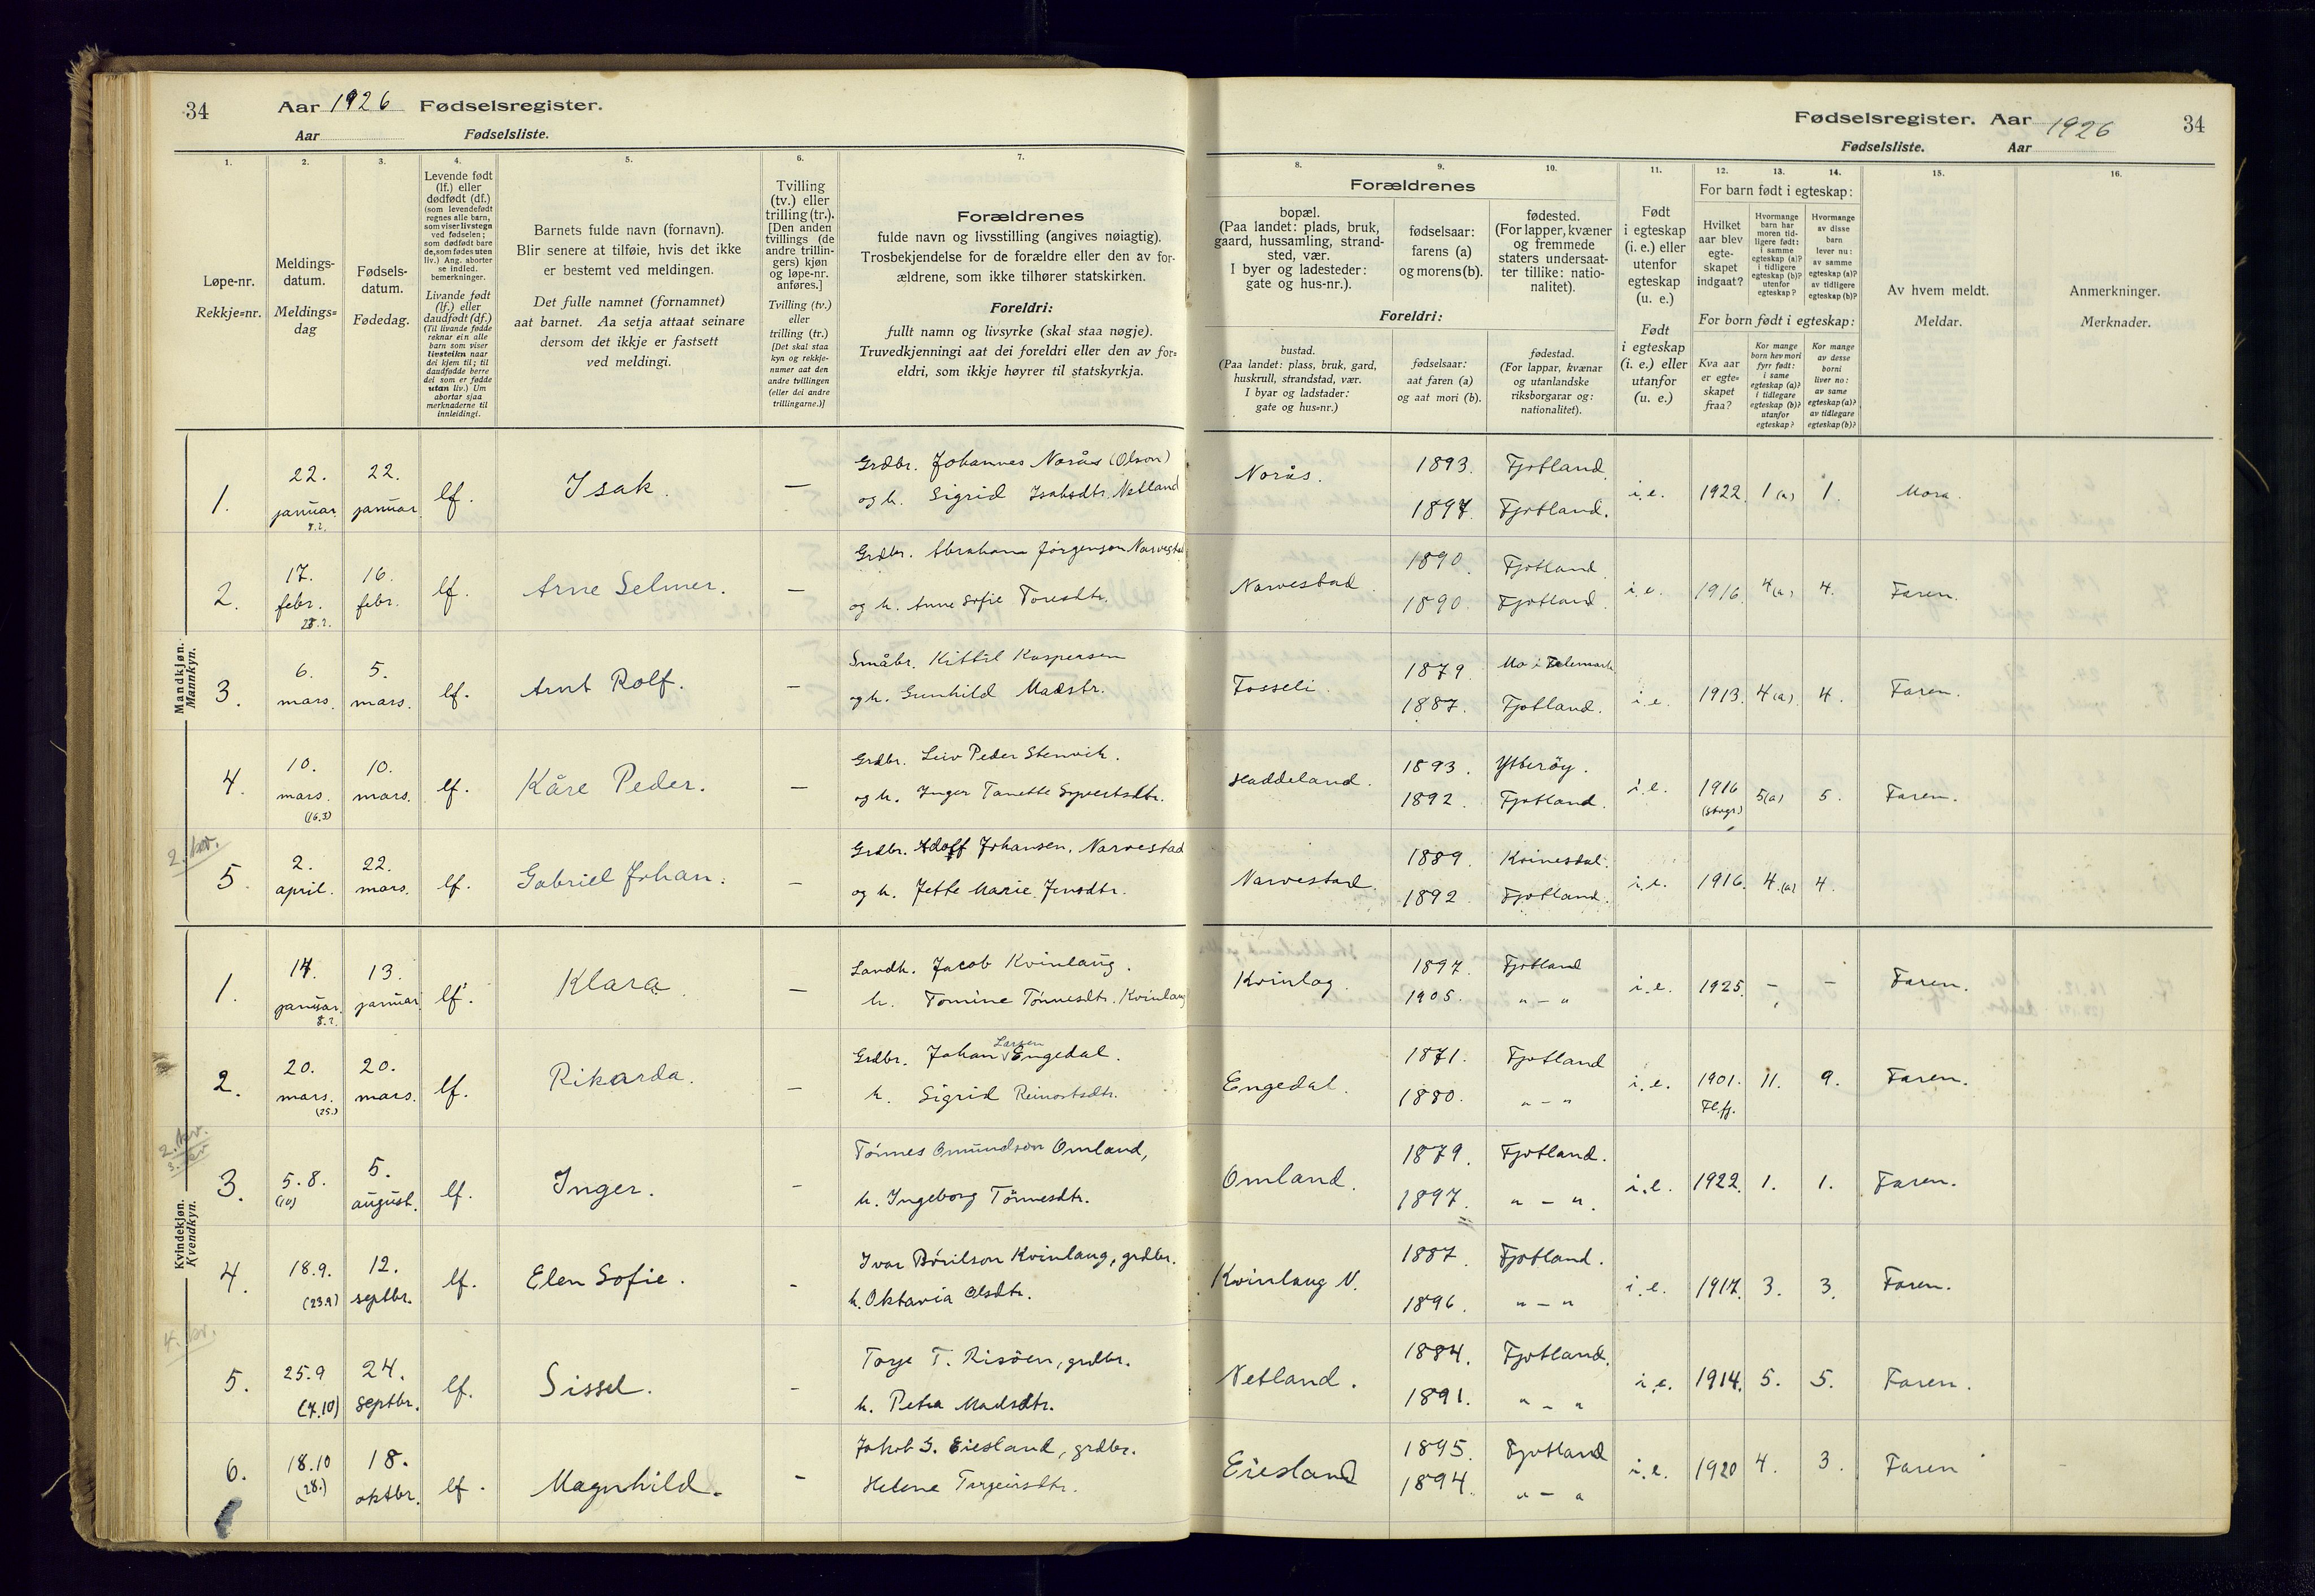 34
Aar 1926 Fødselsregister.
Aar Fødselsliste.
1.
2.
3.
4.
5.
6.
7.
Løpe-nr.
Rekkje=nr.
Meldings-
datum.
Meldings=
dag
Fødsels-
datum.
Fødedag.
Levende født
(lf.) eller
dødfødt (df.)
(som levendefødt
regnes alle barn,
som viser livstegn
ved fødselen;
som dødfødt bare
de, som fødes uten
liv.) Ang. aborter
se indled.
bemerkninger.
Livande født
(lf.) eller
daudfødt (df.)
(Til livande fødde
reknar ein alle
barn som viser
livsteikn naar
dei kjem til; til
daudfødde berre
dei som er fødde
utan liv.) Um
abortar sjaa
merknaderne til
innleidingi.
Barnets fulde navn (fornavn).
Blir senere at tilføie, hvis det ikke
er bestemt ved meldingen.
Det fulle namnet (fornamnet)
aat barnet. Aa setja attaat seinare
dersom det ikkje er fastsett
ved meldingi.
Tvilling
(tv.) eller
trilling (tr.).
[Den anden
tvillings (de
andre trillin-
gers) kjøn
og løpe-nr.
anføres.]
Tvilling (tv.)
eller
trilling (tr.)
[Det skal staa
kyn og rekkje-
numer aat den
andre tvillingen
(eller dei andre
trillingarne.)]
Forældrenes
fulde navn og livsstilling (angives nøiagtig).
Trosbekjendelse for de forældre eller den av for-
ældrene, som ikke tilhører statskirken.
Foreldri:
fullt namn og livsyrke (skal staa nøgje).
Truvedkjenningi aat dei foreldri eller den av for=
eldri, som ikkje høyrer til statskyrkja.
Mandkjøn.
Mannkyn.
1. 22. januar 8.2. 22. januar lf. Isak. — Grdbr. Johannes Norås (Olson)
og h. Sigrid Isaksdtr. Netland
2. 17. febr. 28.2. 16. febr. lf. Arne Selmer. — Grdbr. Abraham Jørgenson
og h. Anne Sofie Toresdtr.
3. 6. mars. 5. mars. lf. Arnt Rolf. — Småbr. Kittil Kaspersen
og h. Gunhild Madstr.
4. 10. mars. (16.3) 10. mars. lf. Kåre Peder. — Grdbr. Leiv Peder Stenvik.
og h. Inger Tanette Syvertsdtr.
2. kv.
5. 2. april. 22. mars. lf. Gabriel Johan. — Grdbr. Adolf Johansen, Narvestad
og h. Jette Marie Jensdtr.
Kvindekjøn.
Kvendkyn.
1. 14. januar. 8.2. 13. januar lf. Klara. — Landh. Jacob Kvinlaug.
h. Tomine Tønnesdtr. Kvinlaug
2. 20. mars. (25.) 20. mars. lf. Rikarda. — Grdbr. Johan Larsen Engedal.
h. Sigrid Reinertsdtr.
2. kv.
3. kv
3. 5.8. (10) 5. august. lf. Inger. - Tønnes Omundson Omland,
h. Ingeborg Tønnesdtr.
4. 18.9. (23.9) 12. septbr. lf. Elen Sofie. - Ivar Bórilson Kvinlaug, grdbr.
h. Oktavia Olsdtr.
4. kv.
5. 25.9 (7.10) 24. septbr. lf. Sissel. - Torje T. Risöen, grdbr.
h. Petra Madsdtr.
6. 18.10 (28.) 18. oktbr. lf. Magnhild. - Jakob G. Eiesland, grdbr.
Helene Torgeirsdtr.
Fødselsregister. Aar 1926
Fødselsliste. Aar
34
8.
9.
10.
11.
12.
13.
14.
15.
16.
Forældrenes
bopæl.
(Paa landet: plads, bruk,
gaard, hussamling, strand-
sted, vær.
I byer og ladesteder:
gate og hus-nr.).
fødselsaar:
farens (a)
og morens (b).
fødested.
(For lapper, kvæner
og fremmede
staters undersaat-
ter tillike: natio-
nalitet).
Foreldri:
bustad.
(Paa landet: plass, bruk, gard,
huskrull, strandstad, vær.
I byar og ladstader:
gate og hus=nr.)
fødselsaar:
aat faren (a)
og aat mori (b).
fødestad.
(For lappar, kvænar
og utanlandske
riksborgarar og:
nationalitet).
Født
i egteskap
(i. e.) eller
utenfor
egteskap
(u. e.)
Født
i egteskap
(i. e.) eller
utanfor
(u. e.)
For barn født i egteskap:
Hvilket
aar blev
egte-
skapet
indgaat?
Hvormange
barn har
moren tid-
ligere født:
i samme
egteskap (a)?
i tidligere
egteskap (b)?
utenfor
egteskap?
Hvormange
av disse
barn
lever nu:
av samme
egteskap (a)?
av tidligere
egteskap (b)?
For born født i egteskap:
Kva aar
er egte=
skapet
fraa?
Kor mange
born hev mori
fyrr født:
i same
egteskap (a)?
i tidlegare
egteskap (b)?
utanfor
egteskap?
Kor mange
av desse
borni
liver no:
av same
egteskap (a)?
av tidlegare
egteskap (b)?
Av hvem meldt.
Meldar.
Anmerkninger.
Merknader.
Norås. 1893. Fjotland
1897. Fjotland. i.e. 1922. 1 (a) 1. Mora.
Narvestad 1890. Fjotland
1890. Fjotland. i.e. 1916. 4(a) 4. Faren.
Fosseli. 1879. Mo i Telemark
1887. Fjotland. i.e. 1913. 4(a). 4. Faren.
Haddeland. 1893. Ytterøy.
1892. Fjotland. i.e. 1916 5(a) 5. Faren.
Narvestad. 1889. Kvinesdal.
1892. Fjotland. i.e. 1916. 4.(a) 4.
Kvinlog. 1897. Fjotland
1905. " — " i.e. 1925. — — Faren.
Engedal. 1871. Fjotland
1880. " — " i.e. 1901. Fl.fj. 11. 9. Faren.
Omland. 1879. Fjotland.
1897. " — " . i.e. 1922. 1. 1. Faren.
Kvinlaug N. 1887. Fjotland.
1896. " — " i.e. 1917. 3. 3. Faren.
Netland. 1884. Fjotland.
1891. " — " i.e. 1914. 5. 5. Faren.
Eiesland 1895. Fjotland
1894. " — " i.e. 1920 4. 3. Faren